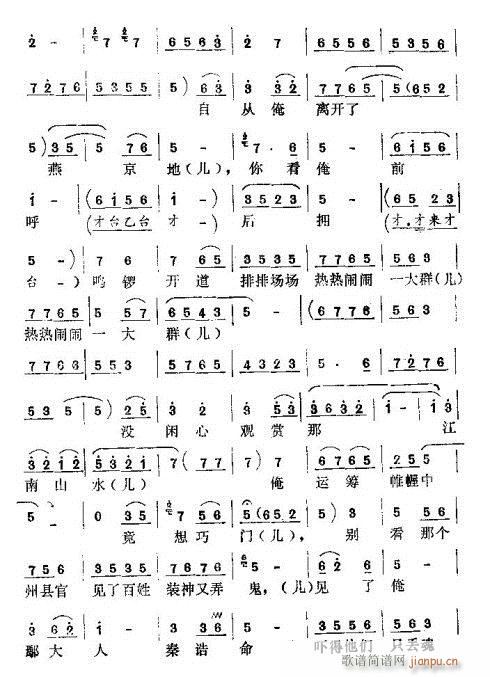 2 - | 7 7 | 6 5 6 3 | 2 7 | 6 5 5 6 | 5 3 3 5 |
7 2 7 6 | 5 3 5 5 | 5) 6 3 | 3 3 2 | 7 7 6 5 | 5 (6 5 2 |
自 从俺 离开了
5) (3 5 | 5 7 6 | 5 - | 7 · 6 | 5 5 | 5 - |
燕 京 地(儿), 你看俺 前
1 - | (6 1 5 6 | 1 -) | 3 5 2 3 | 5 - | (6 5 2 3 |
呼 (才台乙台 才-) 后 拥 (才,才来才
5 -) | 7 6 | 7 6 5 | 3 5 3 5 | 7 7 6 5 | 5 6 3 |
台-) 鸣锣 开道 排排场场 热热闹闹 一大群(儿)
7 7 6 5 | 5 5 7 | 6 5 4 3 | 5 - | (6 7 7 6 | 5 5 3 |
热热闹闹 一大 群(儿)
7 7 6 5 | 3 5 3 5 | 5 7 6 5 | 4 3 2 3 | 5 · 6 | 7 2 7 6 |
5 3 5 | 5) 5 | 3 2 | 3 5 3 | 3 6 3 2 | 1 - | 1 3 |
没 闲心 观赏 那 江
3 2 1 2 | 5 3 2 1 | 7 (7 7 | 7) 7 | 6 7 6 5 | 2 5 5 |
南山 水(儿) 俺 运筹 帷幄中
5 - | 0 3 5 | 7 5 6 | 5 (6 5 2 | 5) 5 | 5 6 5 |
竟 想巧 门(儿), 别 看那个
7 5 6 | 3 5 3 5 | 7 7 6 7 | 5 · 5 | 6 2 6 | 5 5 |
州县官 见了百姓 装神又弄 鬼,(儿)见 了俺
3 6 2 | 1 2 | 3 5 2 3 | 5 - | 3 5 5 6 | 5 6 3 |
鄢大 人 秦浩 命 吓得他们 只丢魂
歌谱简谱网
jianpu.cn